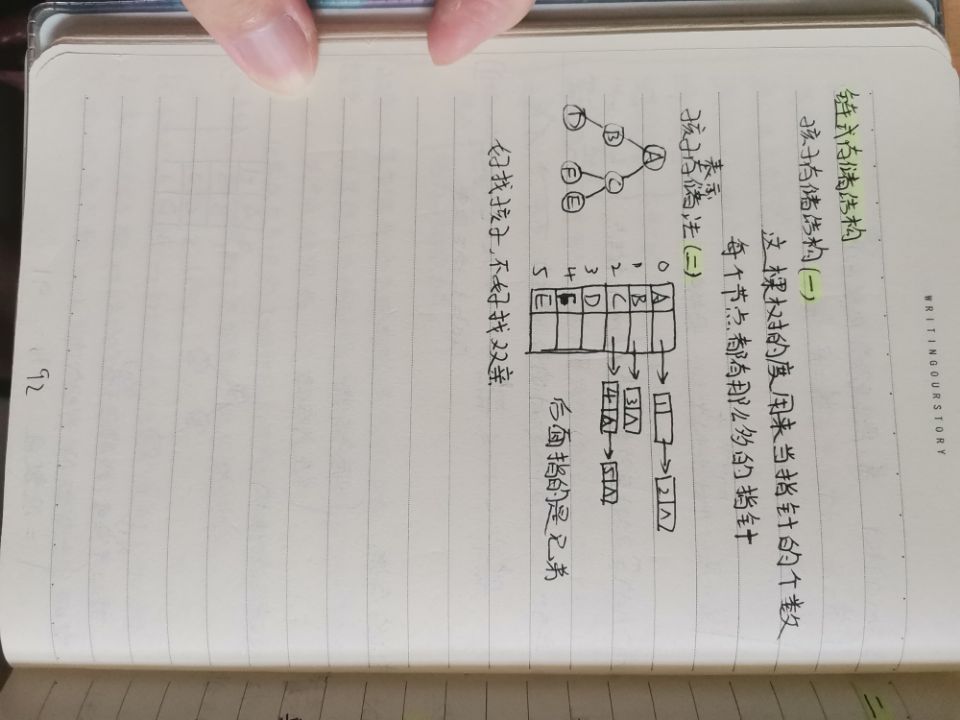 WRITINGOURSTORY
链式存储结构
孩子存储结构(一)
这棵树的度用来当指针的个数
每个节点都有那么多的指针
孩子存储表示法(二)
A
B
C
D
F
E
0 A → 1 → 2 ∧
1 B → 3 ∧
2 C → 4 ∧ → 5 ∧
3 D
4 F
5 E
后面指的是兄弟
好找孩子,不好找双亲
92
二